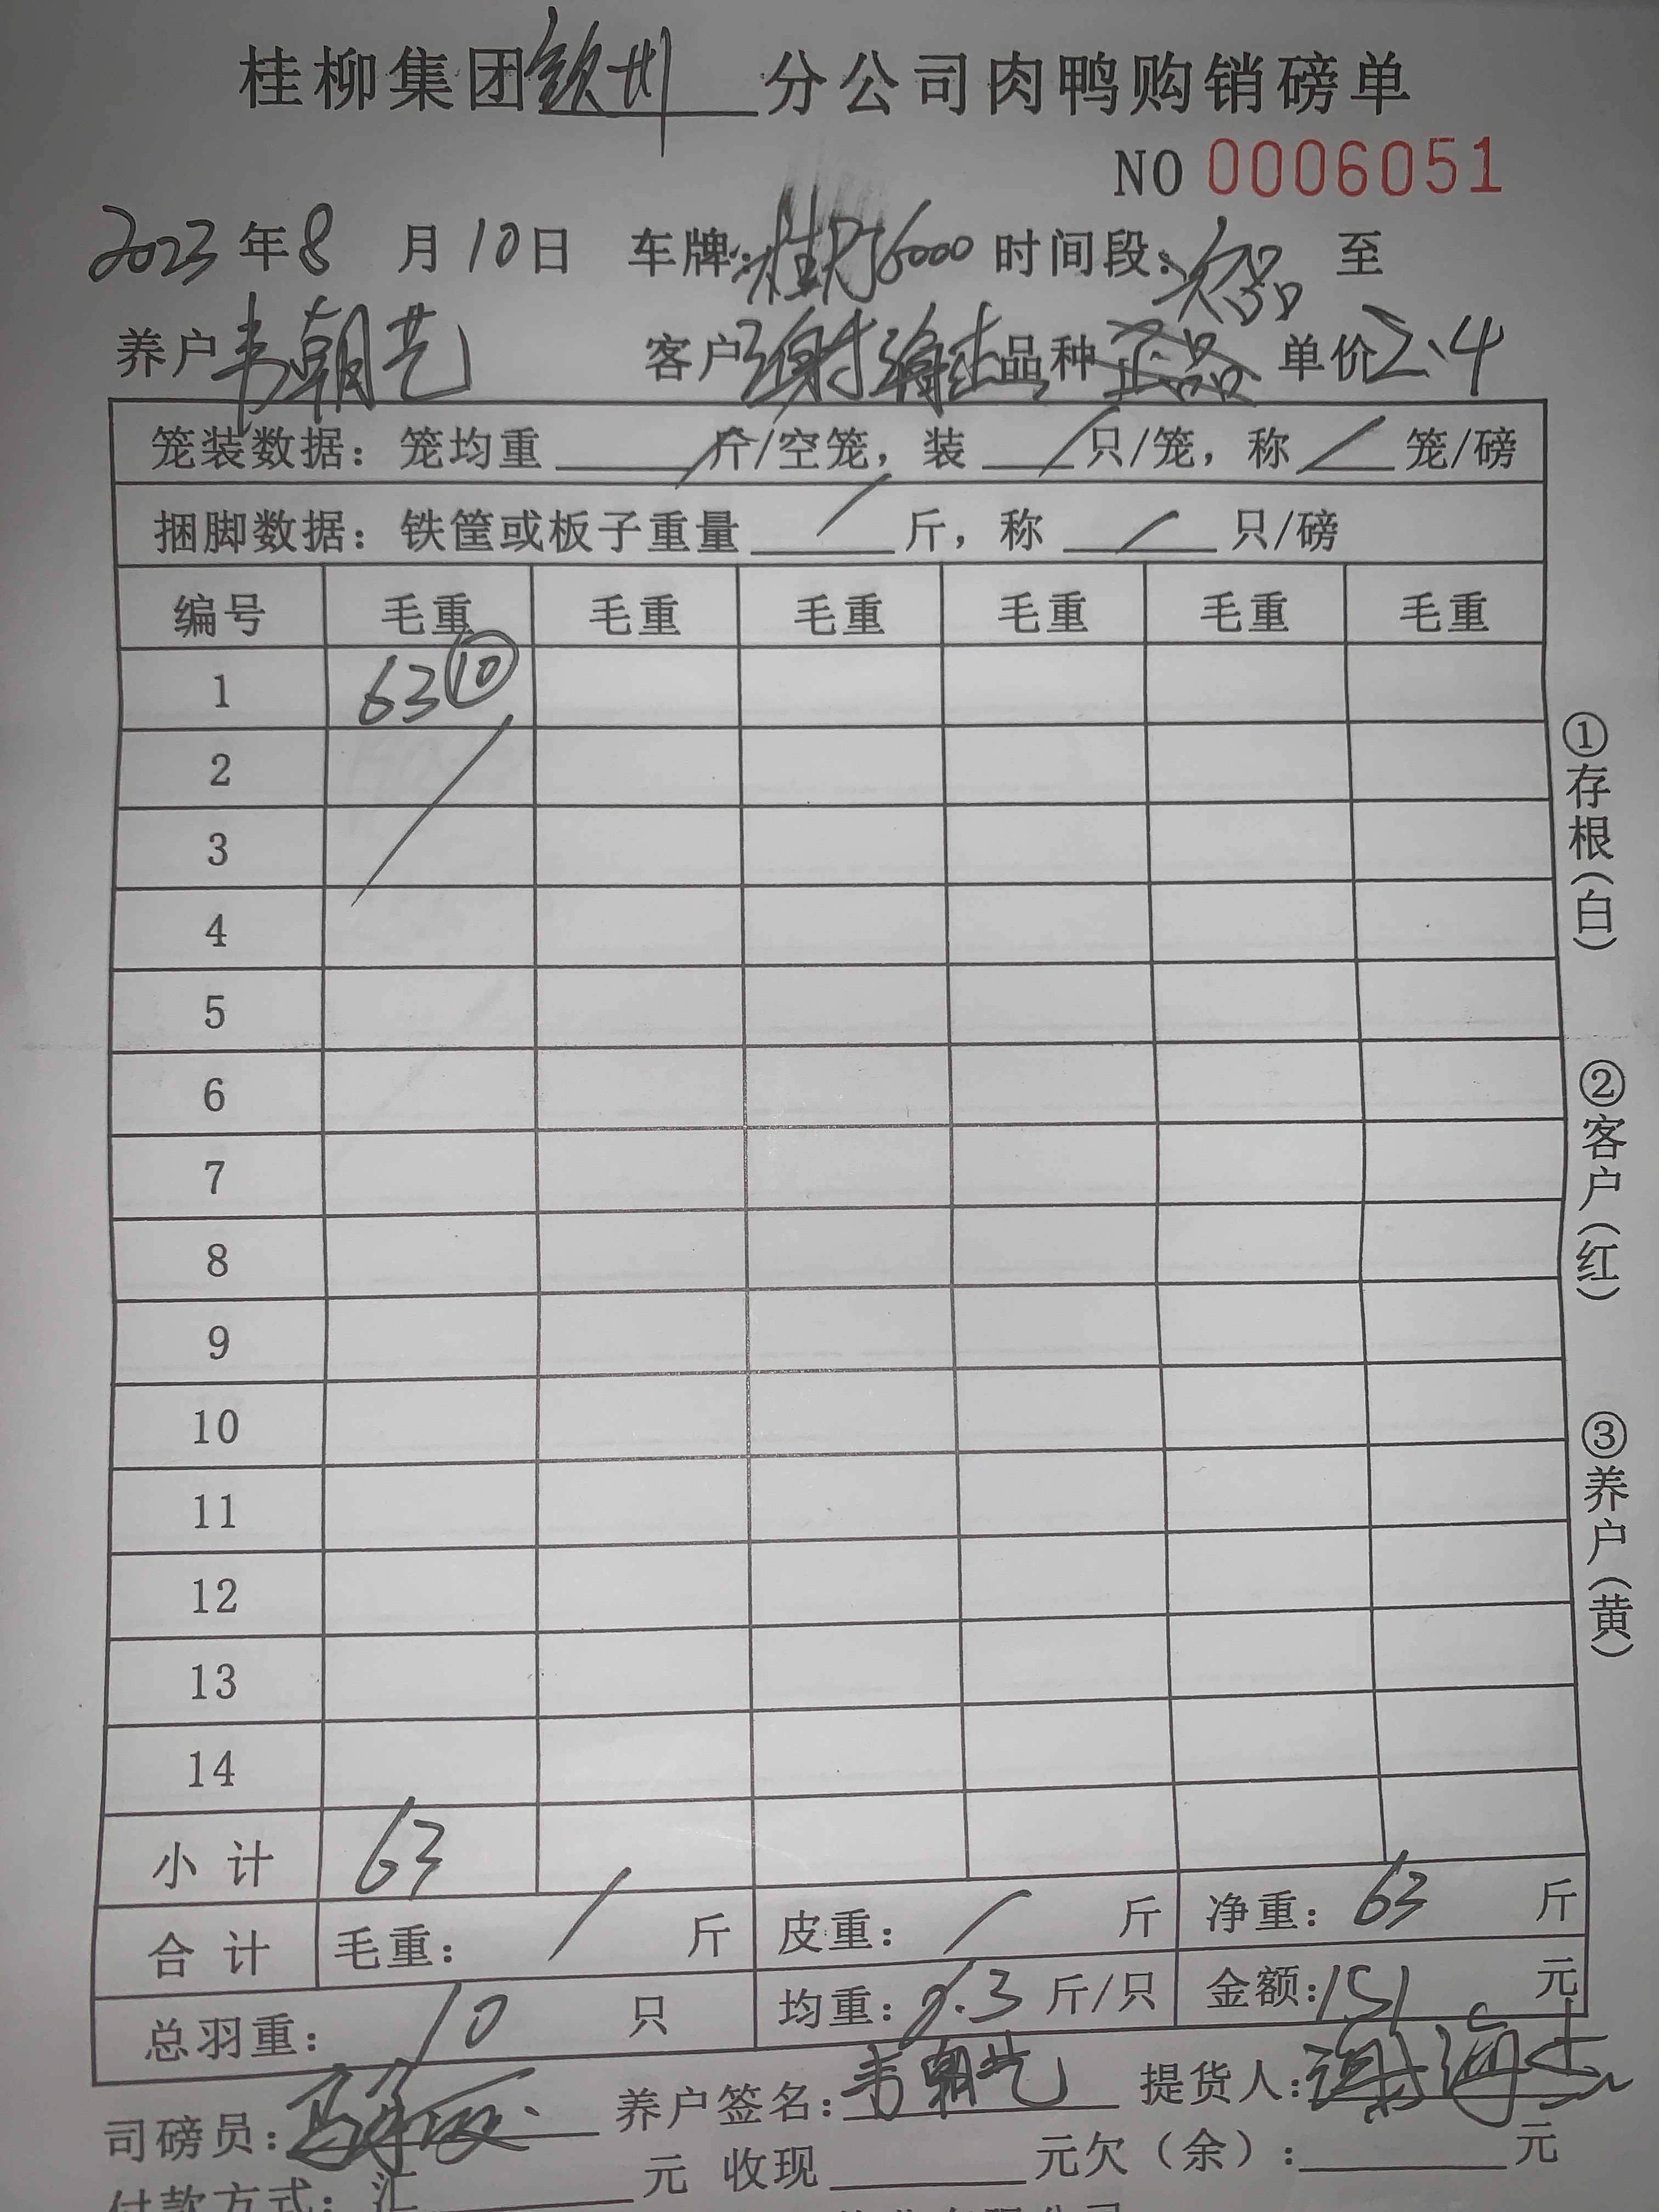 桂柳集团钦州分公司肉鸭购销磅单
NO 0006051
2023年8月10日 车牌: 时间段:次品 至
养户韦朝艺 客户谢海 品种正品 单价2.4
笼装数据: 笼均重 / 斤/空笼, 装 / 只/笼, 称 / 笼/磅
捆脚数据: 铁筐或板子重量 / 斤, 称 / 只/磅
编号 毛重 毛重 毛重 毛重 毛重 毛重
1 63 ⑩
2
3
4
5
6
7
8
9
10
11
12
13
14
小计 63
合计 毛重: / 斤 皮重: / 斤 净重: 63 斤
总羽重: 10 只 均重: 6.3 斤/只 金额: 151 元
司磅员: 养户签名: 韦朝艺 提货人: 谢海
付款方式: 汇 元 收现 元欠(余): 元
①存根(白)
②客户(红)
③养户(黄)